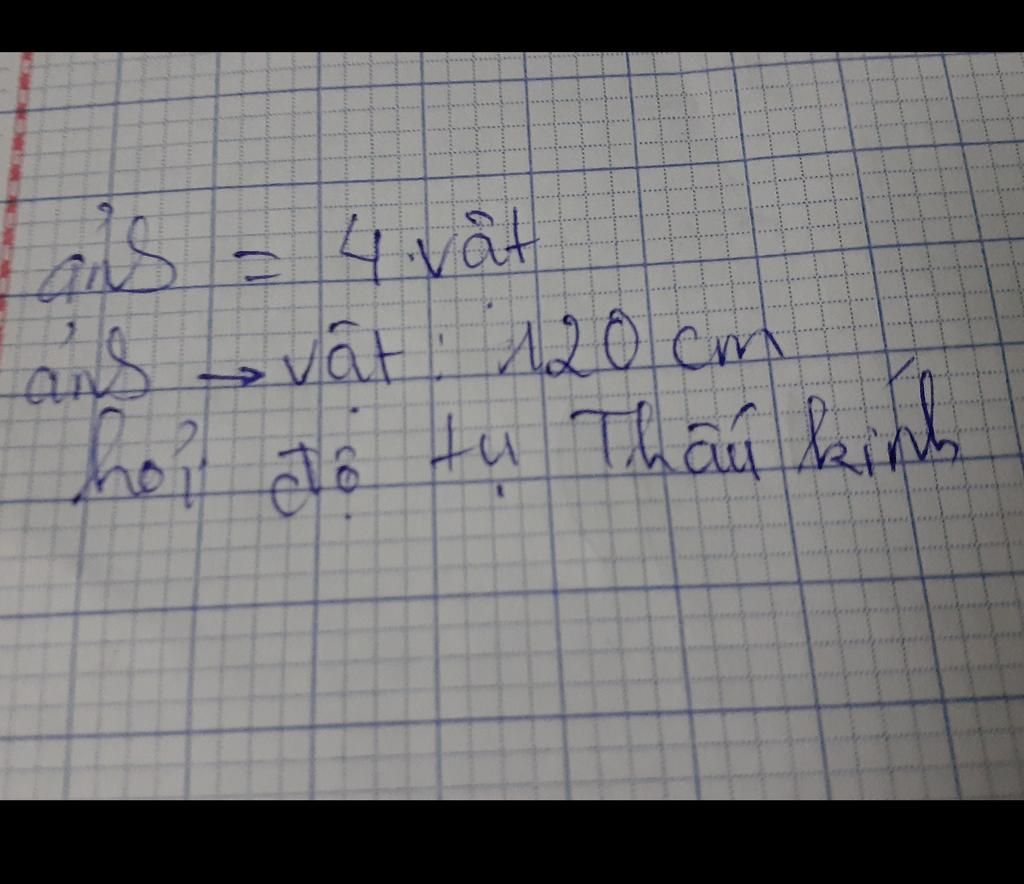 ảnh = 4.vật
ảnh → vật : 120 cm
hỏi độ tụ Thấu kính